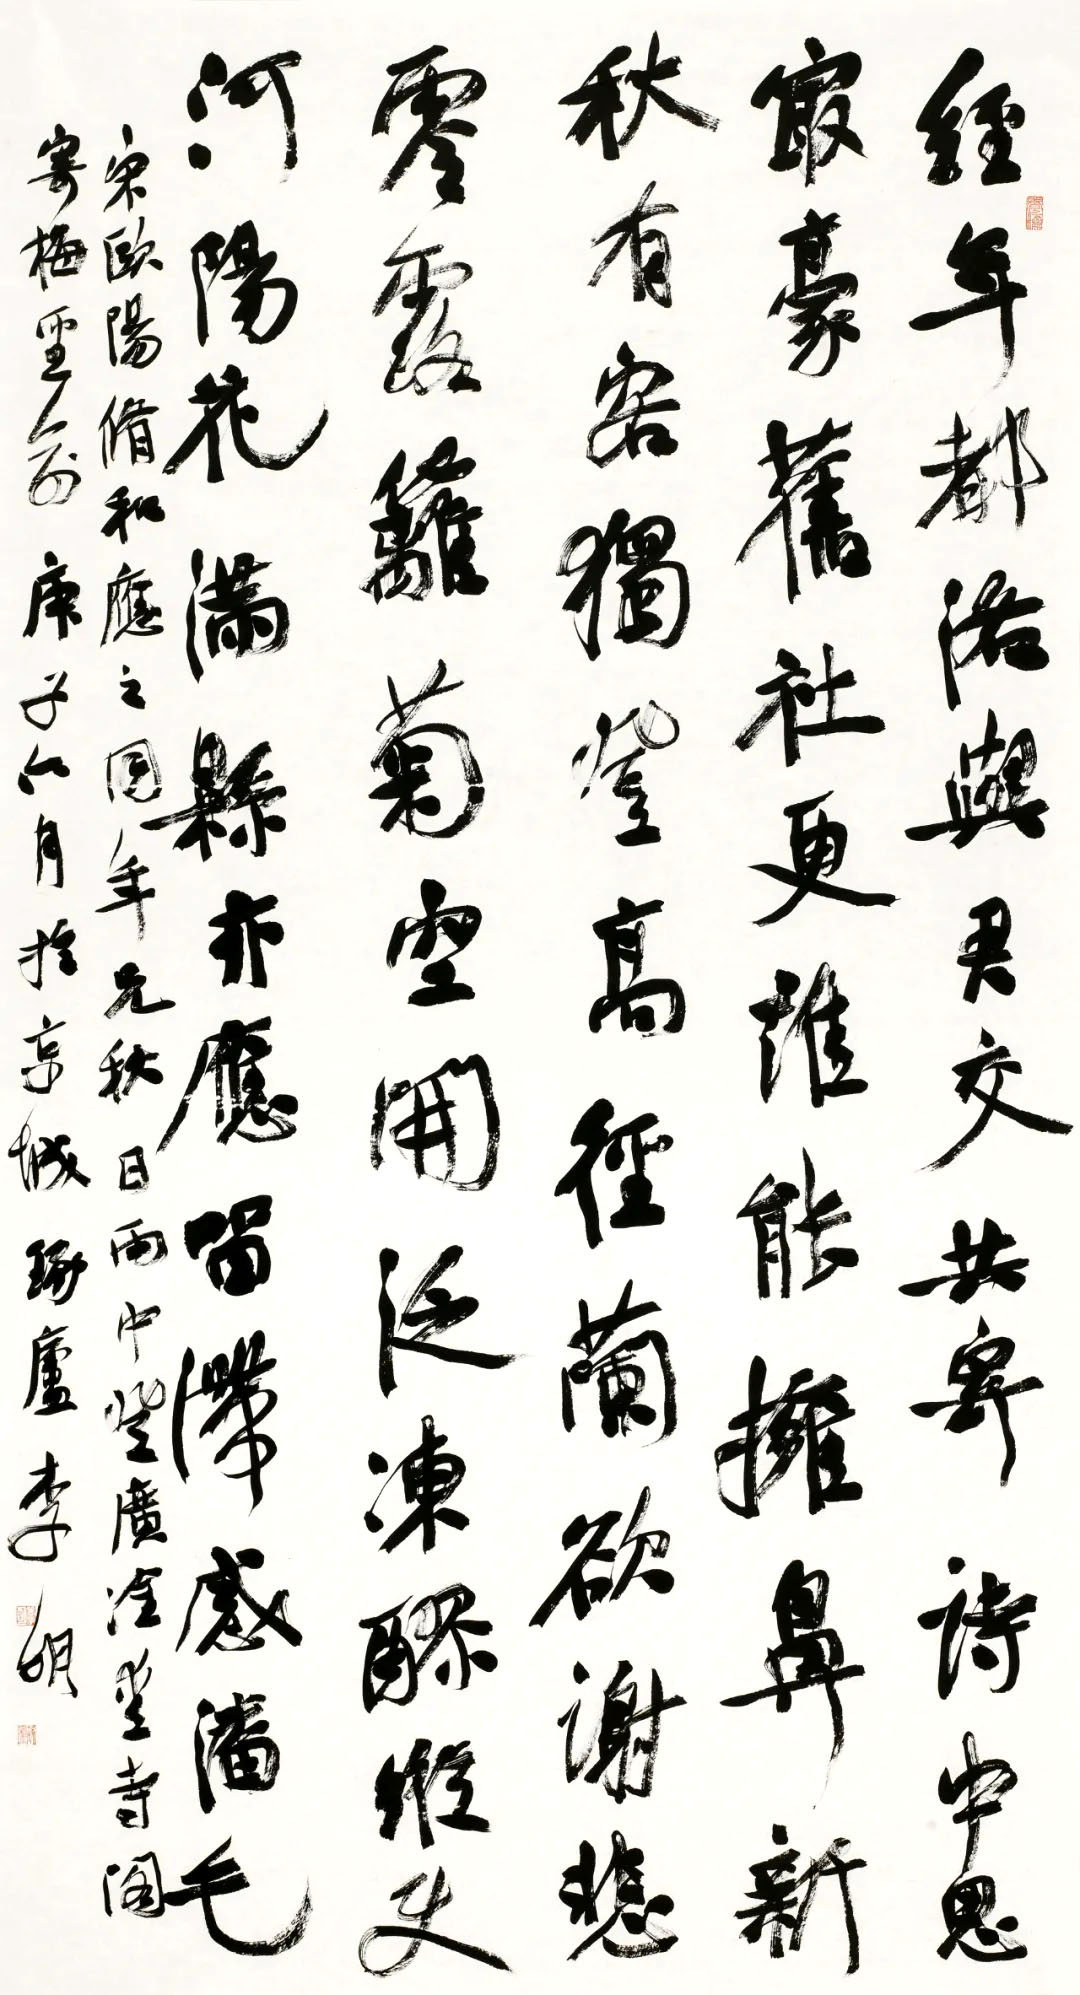 經年都洛與君交共寄詩中思
最豪舊社更誰能擁鼻新
秋有客獨登高徑蘭欲謝悲
零露籬菊空開泛凍醪縱使
河陽花滿縣亦應留滯感潘毛
宋歐陽脩和應之同年兄秋日雨中登廣愛寺閣
寄梅聖俞 庚子六月於京城 琢廬 李明